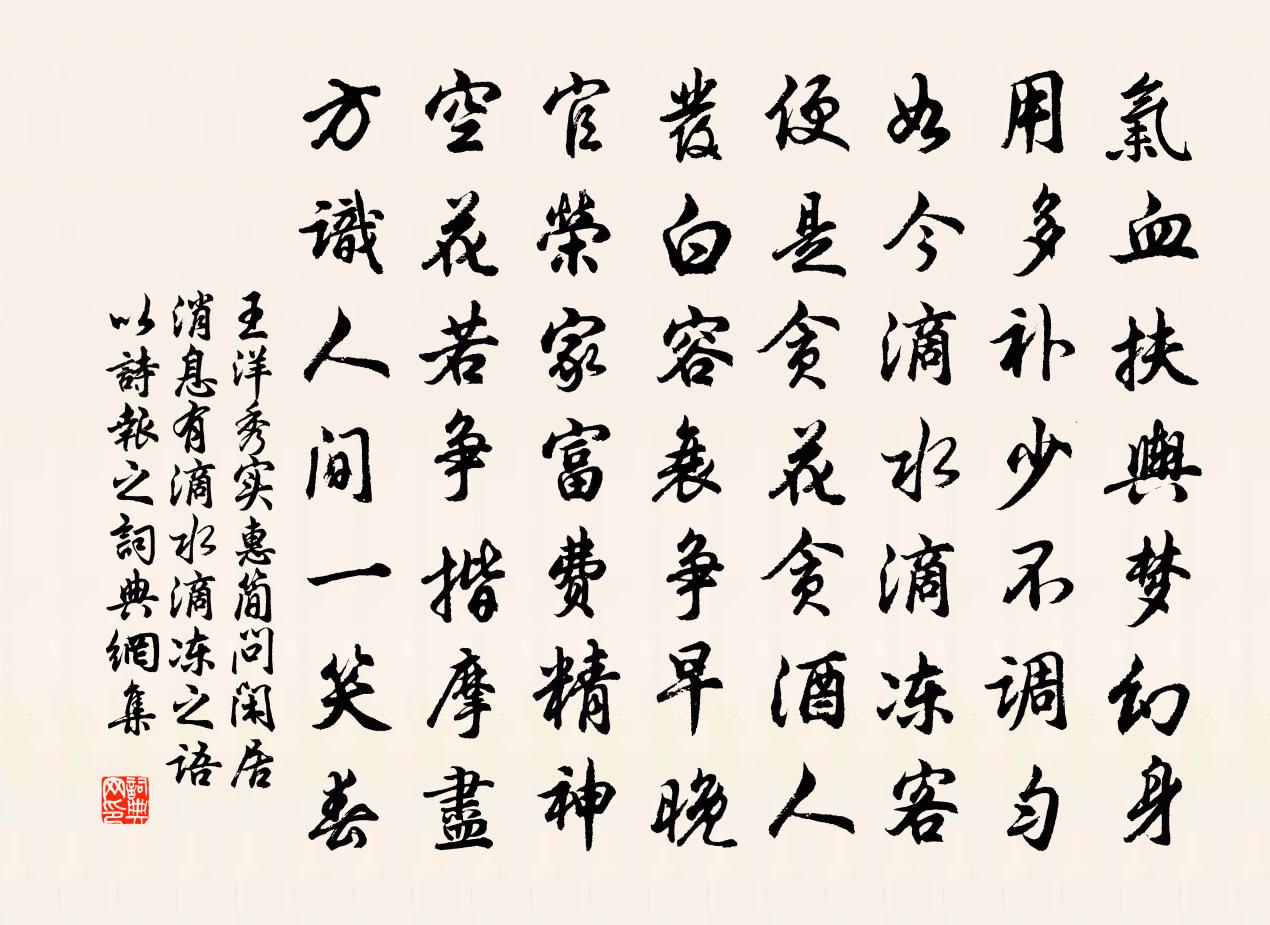 氣血扶輿梦幻身
用多补少不调匀
如今滴水滴冻客
便是贪花贪酒人
發白容衰争早晚
官榮家富费精神
空花若争揩摩盡
方識人间一笑春
王洋秀实惠简问闲居
消息有滴水滴冻之语
以詩報之詞典網集
詞典
网印